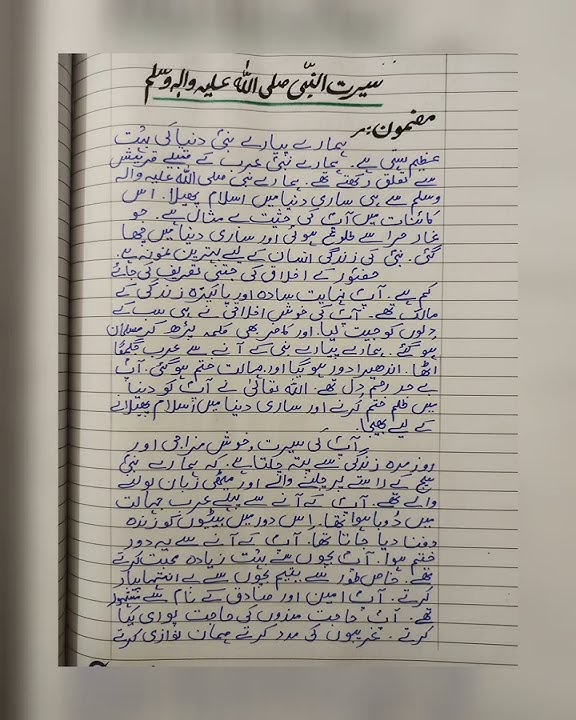 سیرت النبّی صلی اللّٰہ علیہ والہ وسلم
مضمون:۔
ہمارے پیارے نبیؐ دنیا کی بہت
عظیم ہستی ہے۔ ہمارے نبیؐ عرب کے قبیلے قریش
سے تعلق رکھتے تھے۔ ہمارے نبی صلی اللّٰہ علیہ والہ
وسلم سے ہی ساری دنیا میں اسلام پھیلا۔ اس
کائنات میں آپؐ کی حثیت بے مثال ہے۔ جو
غار حرا سے طلوع ہوئی اور ساری دنیا میں چھا
گئی۔ نبیؐ کی زندگی انسان کے لیے بہترین نمونہ ہے۔
حضورؐ کے اخلاق کی جتنی تعریف کی جائے
کم ہے۔ آپؐ نہایت سادہ اور پاکیزہ زندگی کے
مالک تھے۔ آپؐ کی خوش اخلاقی نے ہی سب کے
دلوں کو جیت لیا۔ اور کافر بھی کلمہ پڑھ کر مسلمان
ہو گئے۔ ہمارے پیارے نبی کے آنے سے عرب جگمگا
اُٹھا۔ اندھیرا دور ہو گیا اور جہالت ختم ہو گئی۔ آپؐ
بے حد رحم دل تھے۔ اللّٰہ تعالٰی نے آپؐ کو دنیا
میں ظلم ختم کرنے اور ساری دنیا میں اسلام پھیلانے
کے لیے بھیجا۔
آپؐ کی سیرت، خوش مزاجی اور
روزمرہ زندگی سے پتہ چلتا ہے۔ کہ ہمارے نبیؐ
سچ کے راستے پر چلنے والے اور میٹھی زبان بولنے
والے تھے۔ آپؐ کے آنے سے پہلے عرب جہالت
میں ڈوبا ہوا تھا۔ اس دور میں بیٹیوں کو زندہ
دفنا دیا جاتا تھا۔ آپؐ کے آنے سے یہ دور
ختم ہوا۔ آپؐ بچوں سے بہت زیادہ محبت کرتے
تھے۔ خاص طور سے یتیم بچوں سے بے انتہا پیار
کرتے۔ آپؐ امین اور صادق کے نام سے مشہور
تھے۔ آپؐ حاجت مندوں کی حاجت پوری کیا
کرتے۔ غریبوں کی مدد کرتے مہمان نوازی کرتے